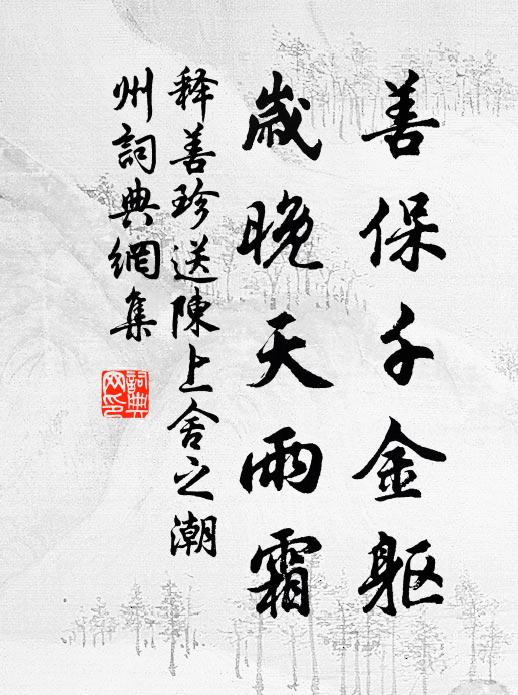 善保千金躯
歲晚天雨霜
释善珍送陳上舍之潮
州詞典網集
詞典
网印